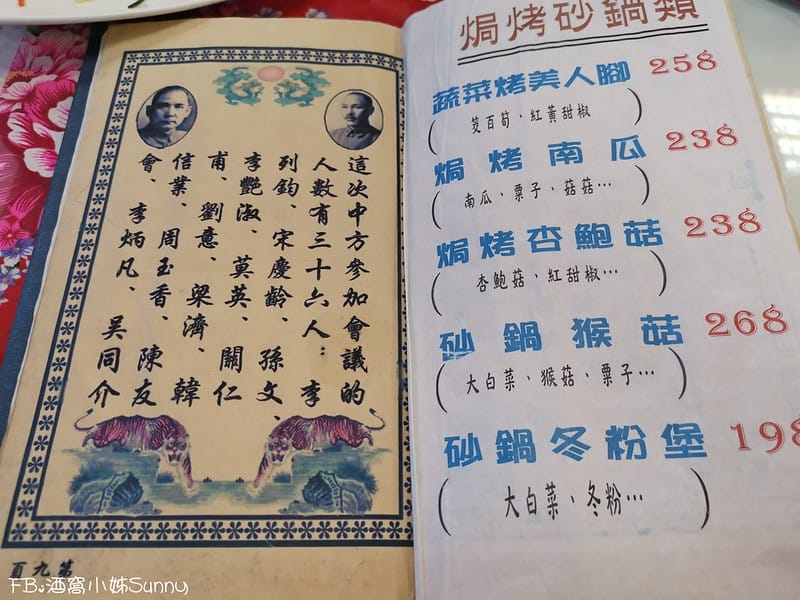 這次中方參加會議的
人數有三十六人：李
列鈞、宋慶齡、孫文、
李艷淑、莫英、關仁
甫、劉意、梁濟、韓
信業、周玉香、陳友
會、李炳凡、吳同介
第九頁
焗烤砂鍋類
蔬菜烤美人腳 258
(筊白筍、紅黃甜椒)
焗烤南瓜 238
(南瓜、栗子、菇菇…)
焗烤杏鮑菇 238
(杏鮑菇、紅甜椒…)
砂鍋猴菇 268
(大白菜、猴菇、栗子…)
砂鍋冬粉堡 198
(大白菜、冬粉…)
FB:酒窩小姊Sunny